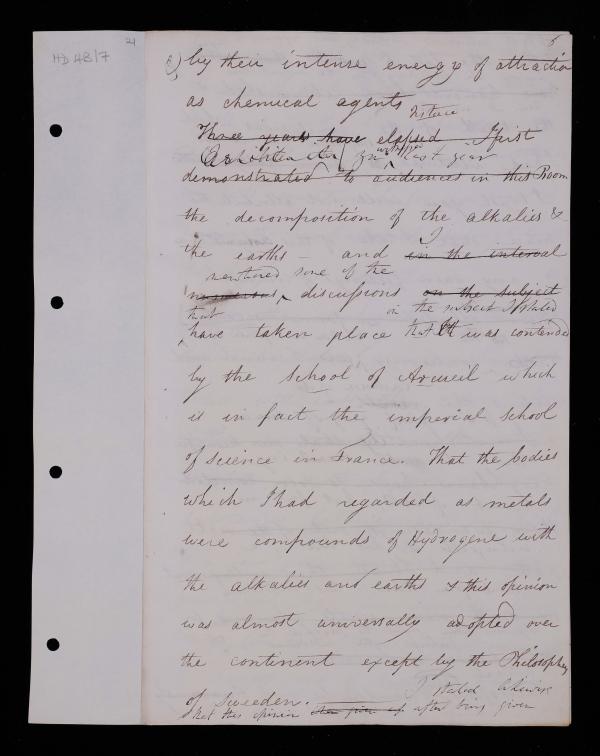 HD 4B/7
21
5
by their intense energy of attraction
as chemical agents
Three years have elapsed I first
last year
demonstrated to audiences in this Room
the decomposition of the alkalies &
the earths – and I in the interval
mentioned some of the
numerous discussions on the subject
that on the subject I stated
have taken place that it was contended
by the school of Arcueil which
is in fact the imperial school
of science in France. That the bodies
which I had regarded as metals
were compounds of Hydrogene with
the alkalies and earths & this opinion
was almost universally adopted over
the continent except by the Philosophers
of Sweeden. I stated likewise
that this opinion after being given